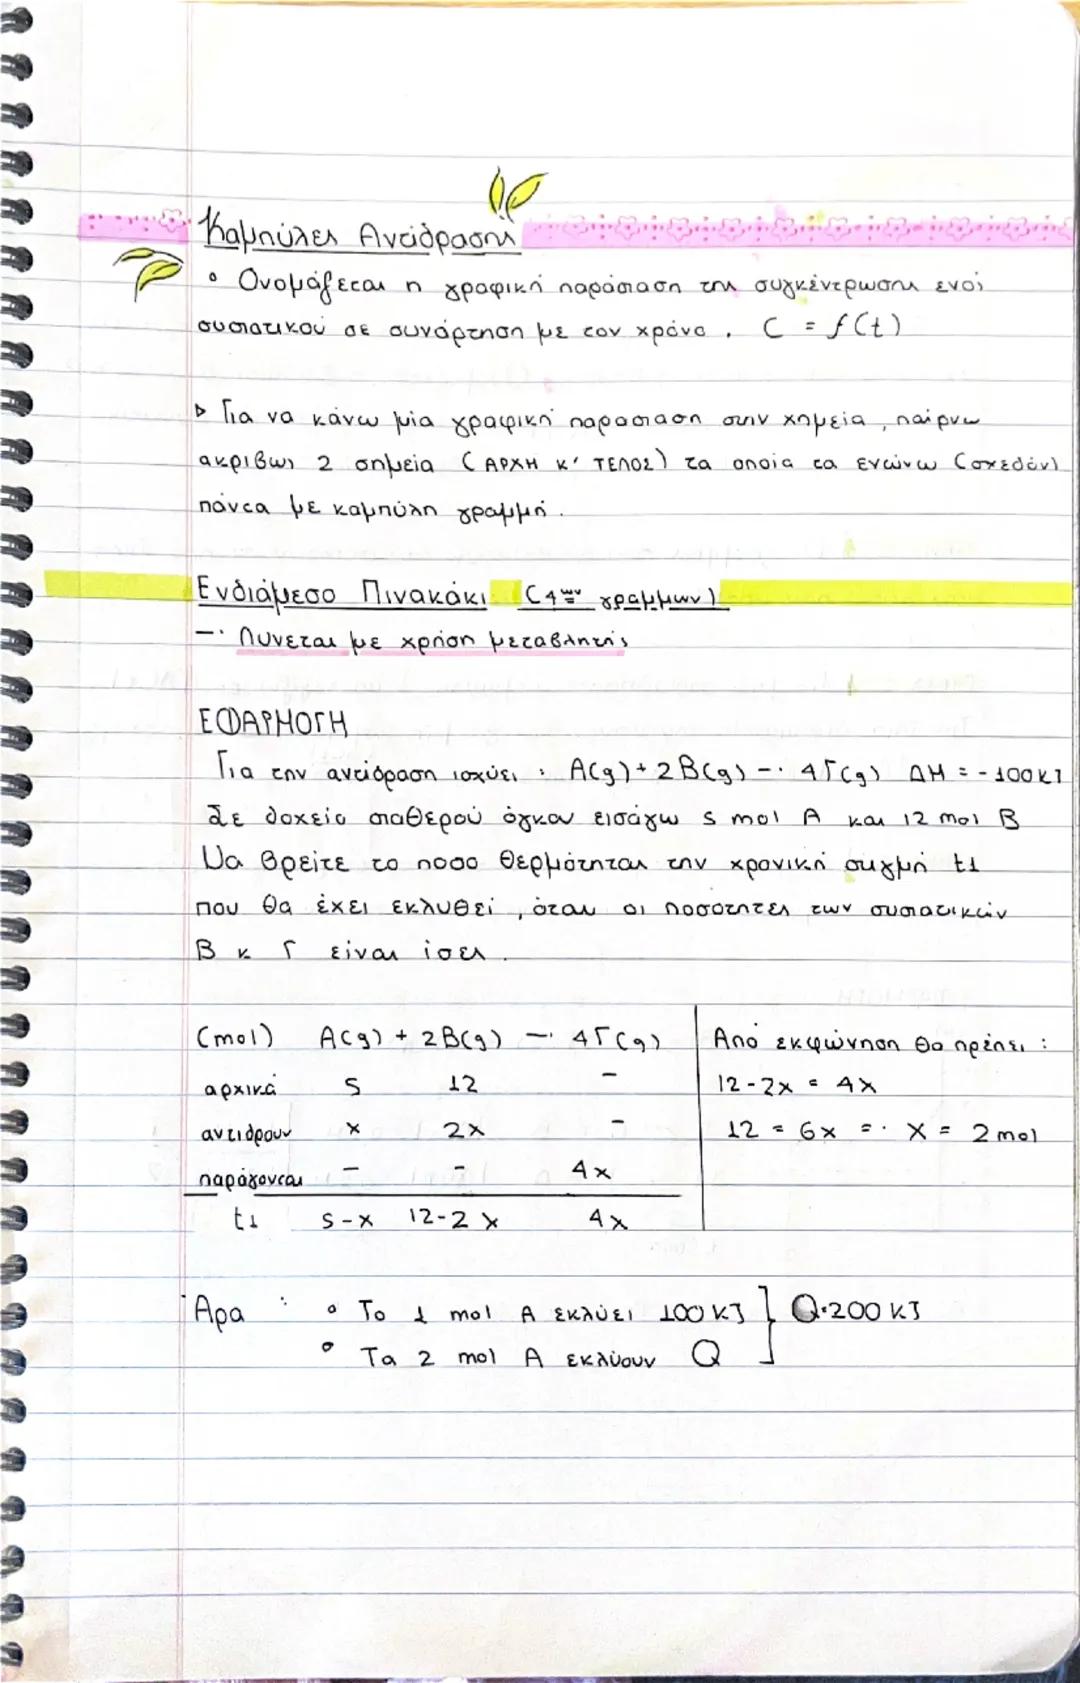 Καμπύλες Αντίδρασης
• Ονομάζεται η γραφική παράσταση της συγκέντρωσης ενός
συστατικού σε συνάρτηση με τον χρόνο. C = f(t)
▷ Για να κάνω μία γραφική παράσταση στην χημεία, παίρνω
ακριβώς 2 σημεία (ΑΡΧΗ Κ' ΤΕΛΟΣ) τα οποία τα ενώνω (σχεδόν)
πάντα με καμπύλη γραμμή.
Ενδιάμεσο Πινακάκι (4ων γραμμών)
→ Λύνεται με χρήση μεταβλητής
ΕΦΑΡΜΟΓΗ
Για την αντίδραση ισχύει: A(g) + 2B(g) → 4Γ(g) ΔΗ = -100kJ
Σε δοχείο σταθερού όγκου εισάγω 5 mol A και 12 mol B
Να βρείτε το ποσο θερμότητας την χρονική στιγμή t1
που θα έχει εκλυθεί, όταν οι ποσότητες των συστατικών
Β κ Γ είναι ίσες.
(mol) A(g) + 2B(g) → 4Γ(g)
αρχικά 5 12 -
αντιδρουν x 2x -
παράγονται - - 4x
t1 5-x 12-2x 4x
Από εκφώνηση θα πρέπει:
12-2x = 4x
12 = 6x => x = 2 mol
Άρα : • Το 1 mol A εκλύει 100 kJ } Q=200 kJ
• Τα 2 mol A εκλύουν Q